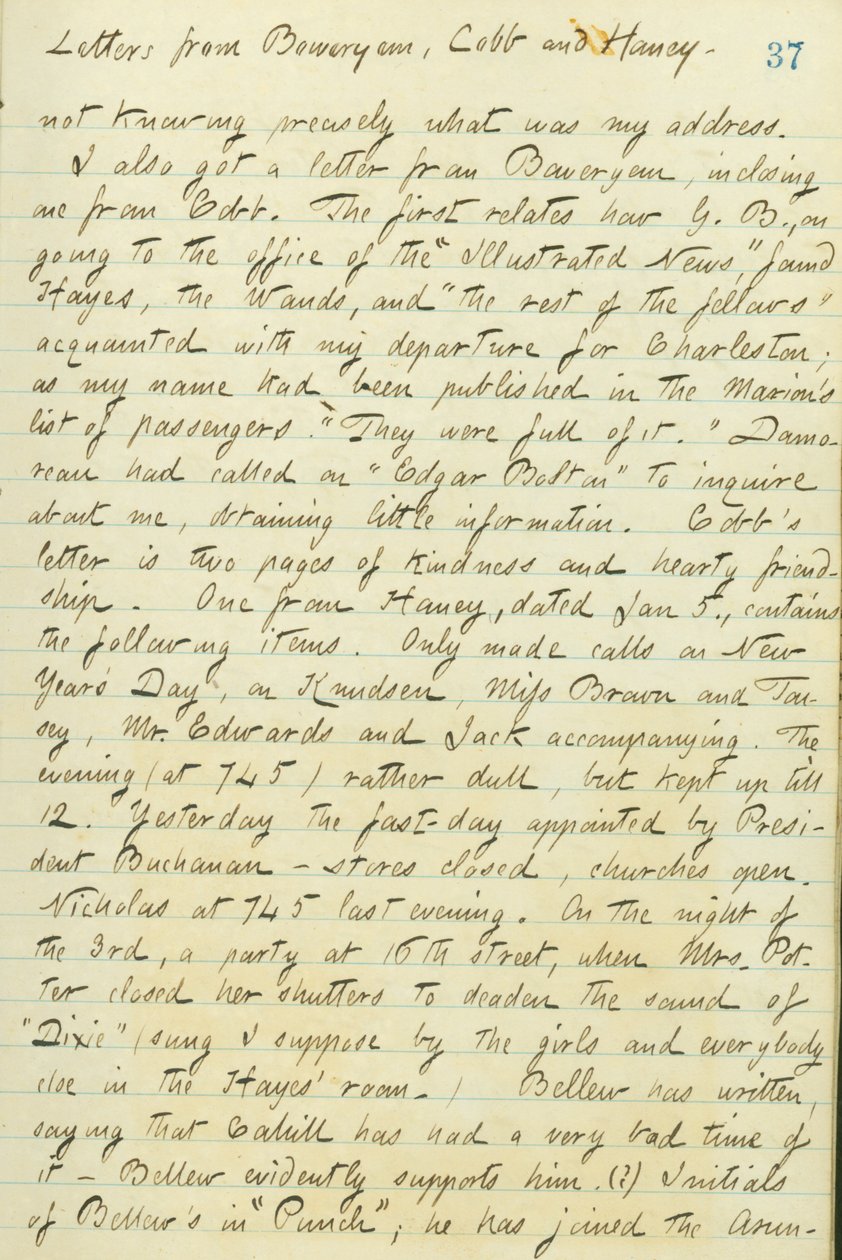 Letters from Boweryem, Cobb and Haney-
37
not knowing precisely what was my address.
I also got a letter from Boweryem, inclosing
one from Cobb. The first relates how G. B., on
going to the office of the "Illustrated News," found
Hayes, the Wauds, and "the rest of the fellows"
acquainted with my departure for Charleston;
as my name had been published in the Marion's
list of passengers. "They were full of it." Damo-
reau had called on "Edgar Bolton" to inquire
about me, obtaining little information. Cobb's
letter is two pages of kindness and hearty friend-
ship. One from Haney, dated Jan 5., contains
the following items. Only made calls on New
Year's Day, on Knudsen, Miss Brown and Tou-
sey, Mr. Edwards and Jack accompanying. The
evening (at 745) rather dull, but kept up till
12. Yesterday the fast-day appointed by Presi-
dent Buchanan - stores closed, churches open.
Nicholas at 745 last evening. On the night of
the 3rd, a party at 16th street, when Mrs. Pot-
ter closed her shutters to deaden the sound of
"Dixie" (sung I suppose by the girls and everybody
else in the Hayes' room.) Bellew has written,
saying that Cahill has had a very bad time of
it - Bellew evidently supports him. (?) Initials
of Bellew's in "Punch"; he has joined the Arun-